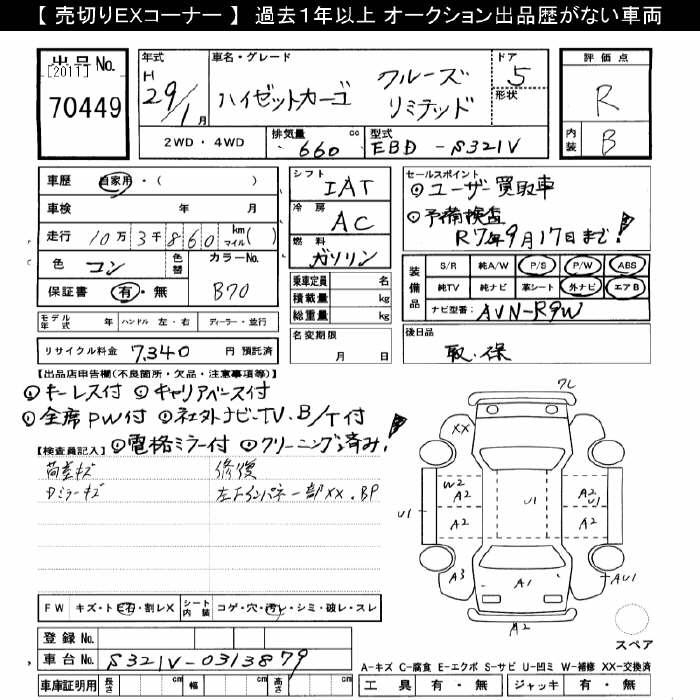 【 売切りEXコーナー 】 過去１年以上 オークション出品歴がない車両
出品No.
[2011]
70449
年式
H
29/1 月
車名・グレード
ハイゼットカーゴ クルーズ リミテッド
ドア
5
形状
2WD・4WD
排気量
660 cc
型式
EBD-S321V
評価点
R
内装
B
車歴 自家用・( )
車検 年 月
走行 10万3千860 km マイル( )
色 コン 色替 カラーNo.
保証書 有・無 B70
モデル年式 年 ハンドル 左・右 ディーラー・並行
リサイクル料金 7,340 円 預託済
シフト
IAT
冷房
AC
燃料
ガソリン
乗車定員 名
積載量 kg
総重量 kg
名変期限
月 日
セールスポイント
◎ユーザー買取車
◎予備検査
R7年9月17日まで!
装備品
S/R 純A/W P/S P/W ABS
純TV 純ナビ 革シート 外ナビ エアB
ナビ型番: AVN-R9W
後日品
取.保
【出品店申告欄(不良箇所・欠品・注意事項等)】
◎キーレス付 ◎キャリアベース付
◎全席PW付 ◎社外ナビ.TV.B/T付
◎電格ミラー付 ◎クリーニング済み!
【検査員記入】
荷差キズ
Dミラーキズ
修復
左Fインパネ一部XX.BP
FW キズ・トビ石・割レX シート内装 コゲ・穴・汚レ・シミ・破レ・スレ
登録No.
車台No. S321V-0313879
車庫証明用 長さ cm 幅 cm 高さ cm
フL
XX
W2
A2
A2
U1
U1
A2
U1
A2
A3
A1
AU1
A2
スペア
A-キズ C-腐食 E-エクボ S-サビ U-凹ミ W-補修 XX-交換済
工具 有・無 ジャッキ 有・無